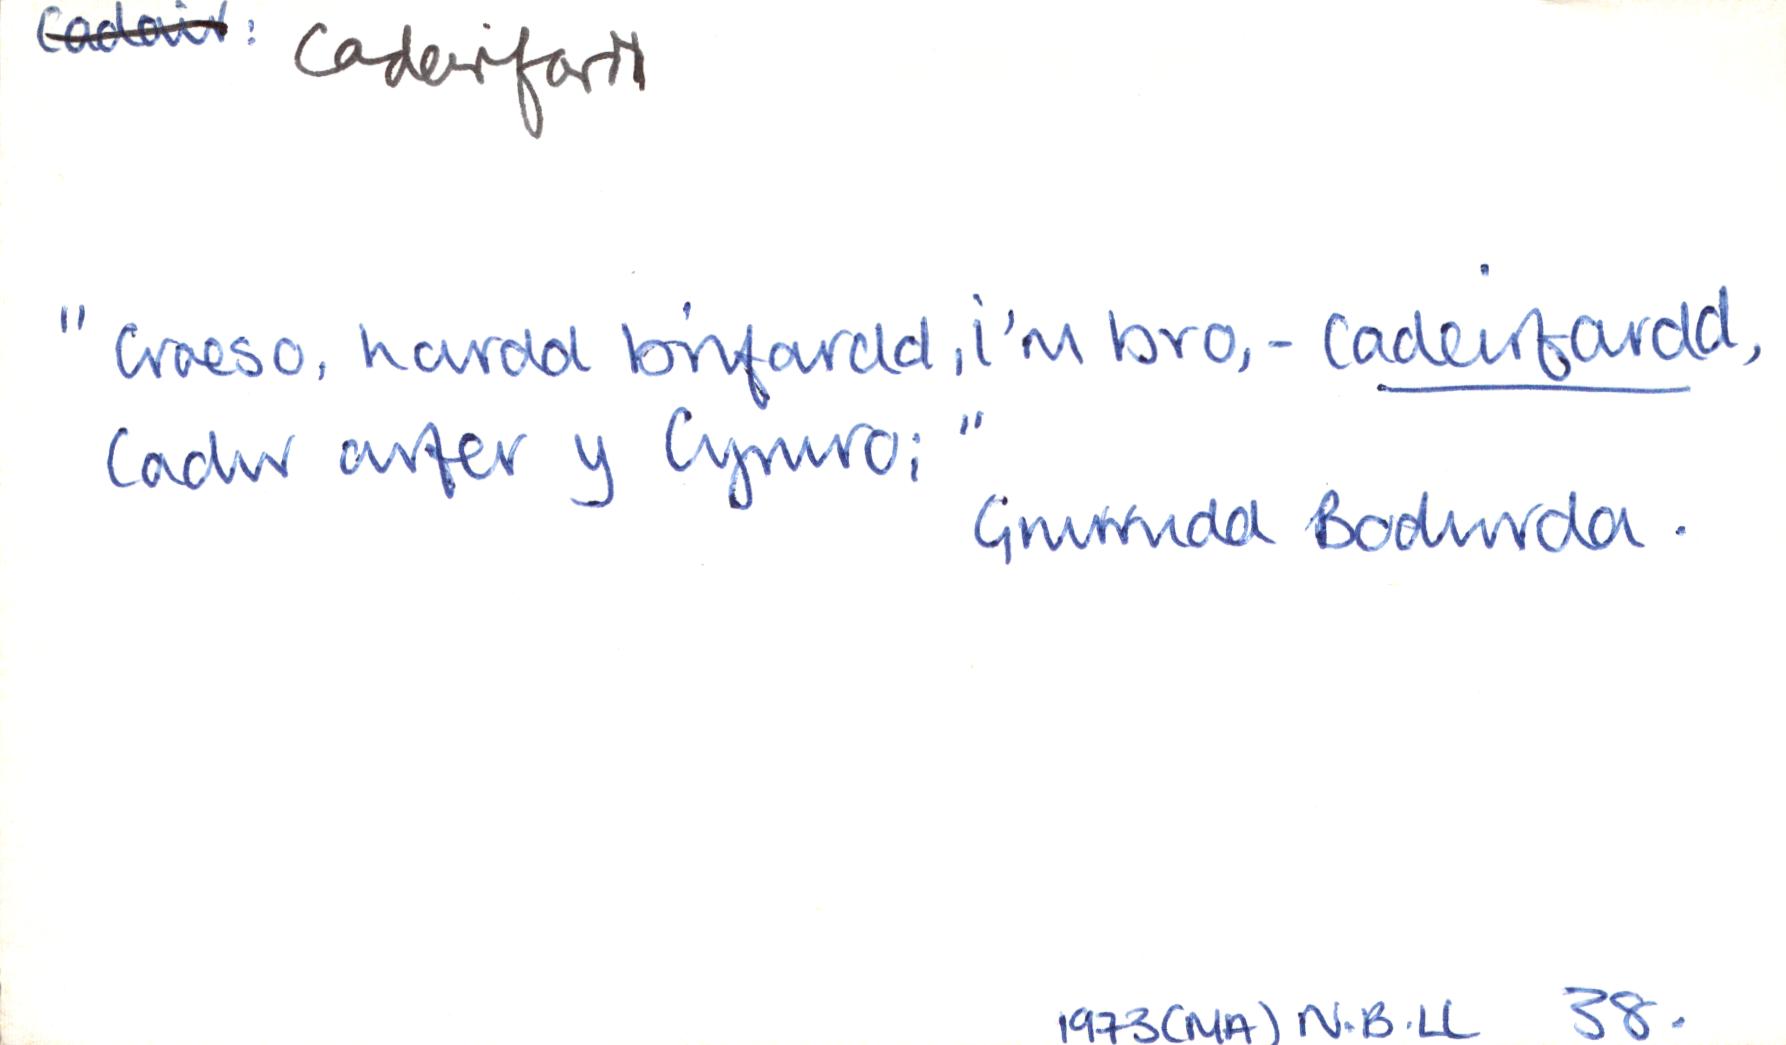 Cadair: Cadeirfardd
"Croeso, hardd brifardd, i'n bro, - Cadeirfardd,
Cadw arfer y Cymro;"
Gruffudd Bodwrda.
1973 (MA) N.B.LL 38.